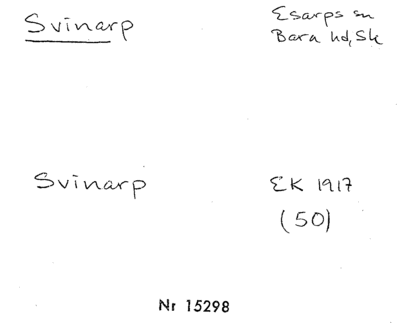 Svinarp
Esarps sn
Bara hd, Sk
Svinarp
EK 1917
(50)
Nr 15298